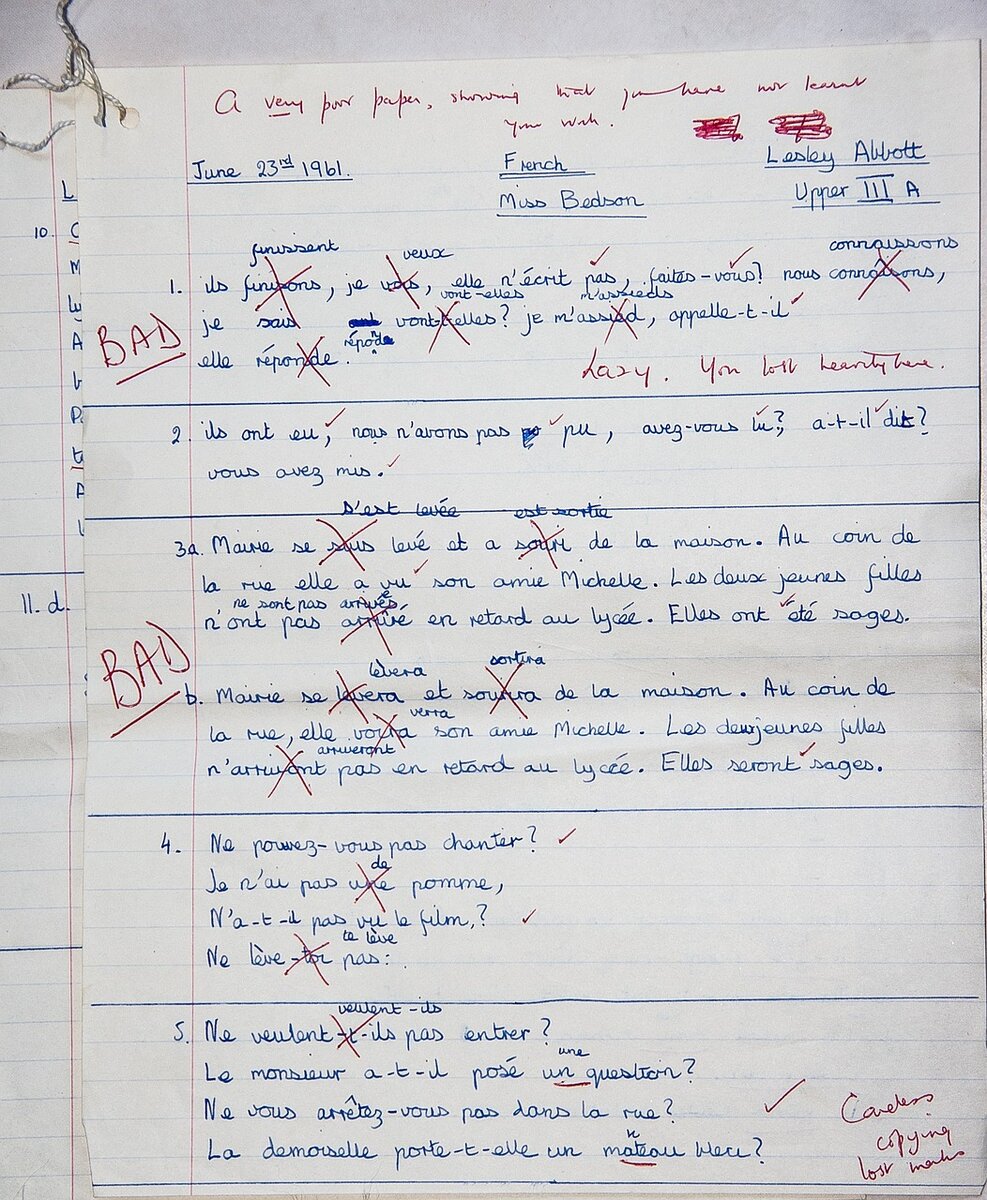 A very poor paper, showing that you have not learnt
your work.
June 23rd 1961.
French
Lesley Abbott
Miss Bedson
Upper III A
finissent veux connaissons
1. ils finisons, je vois, elle n'écrit pas, faites-vous? nous connaîsons,
vont-elles m'assieds
je sais vont-t-elles? je m'assied, appelle-t-il
BAD
répond
elle réponde.
Lazy. You lost heavily here.
2. ils ont eu, nous n'avons pas pu, avez-vous lu?, a-t-il dit?
vous avez mis.
s'est levée est sortie
3a. Mairie se suis levé et a souri de la maison. Au coin de
la rue elle a vu son amie Michelle. Les deux jeunes filles
ne sont pas arrivées
n'ont pas arrivé en retard au lycée. Elles ont été sages.
BAD
lèvera sortira
b. Mairie se levera et sourira de la maison. Au coin de
verra
la rue, elle voira son amie Michelle. Les deux jeunes filles
arriveront
n'arriyont pas en retard au lycée. Elles seront sages.
4. Ne pouvez-vous pas chanter?
de
Je n'ai pas une pomme,
N'a-t-il pas vu le film,?
te lève
Ne lève-toi pas:
veulent-ils
5. Ne veulent-t-ils pas entrer?
une
Le monsieur a-t-il posé un question?
Ne vous arrêtez-vous pas dans la rue?
n
La demoiselle porte-t-elle un mateau bleu?
Careless
copying
lost marks
L
10.
C
M
A
P
A
11. d.